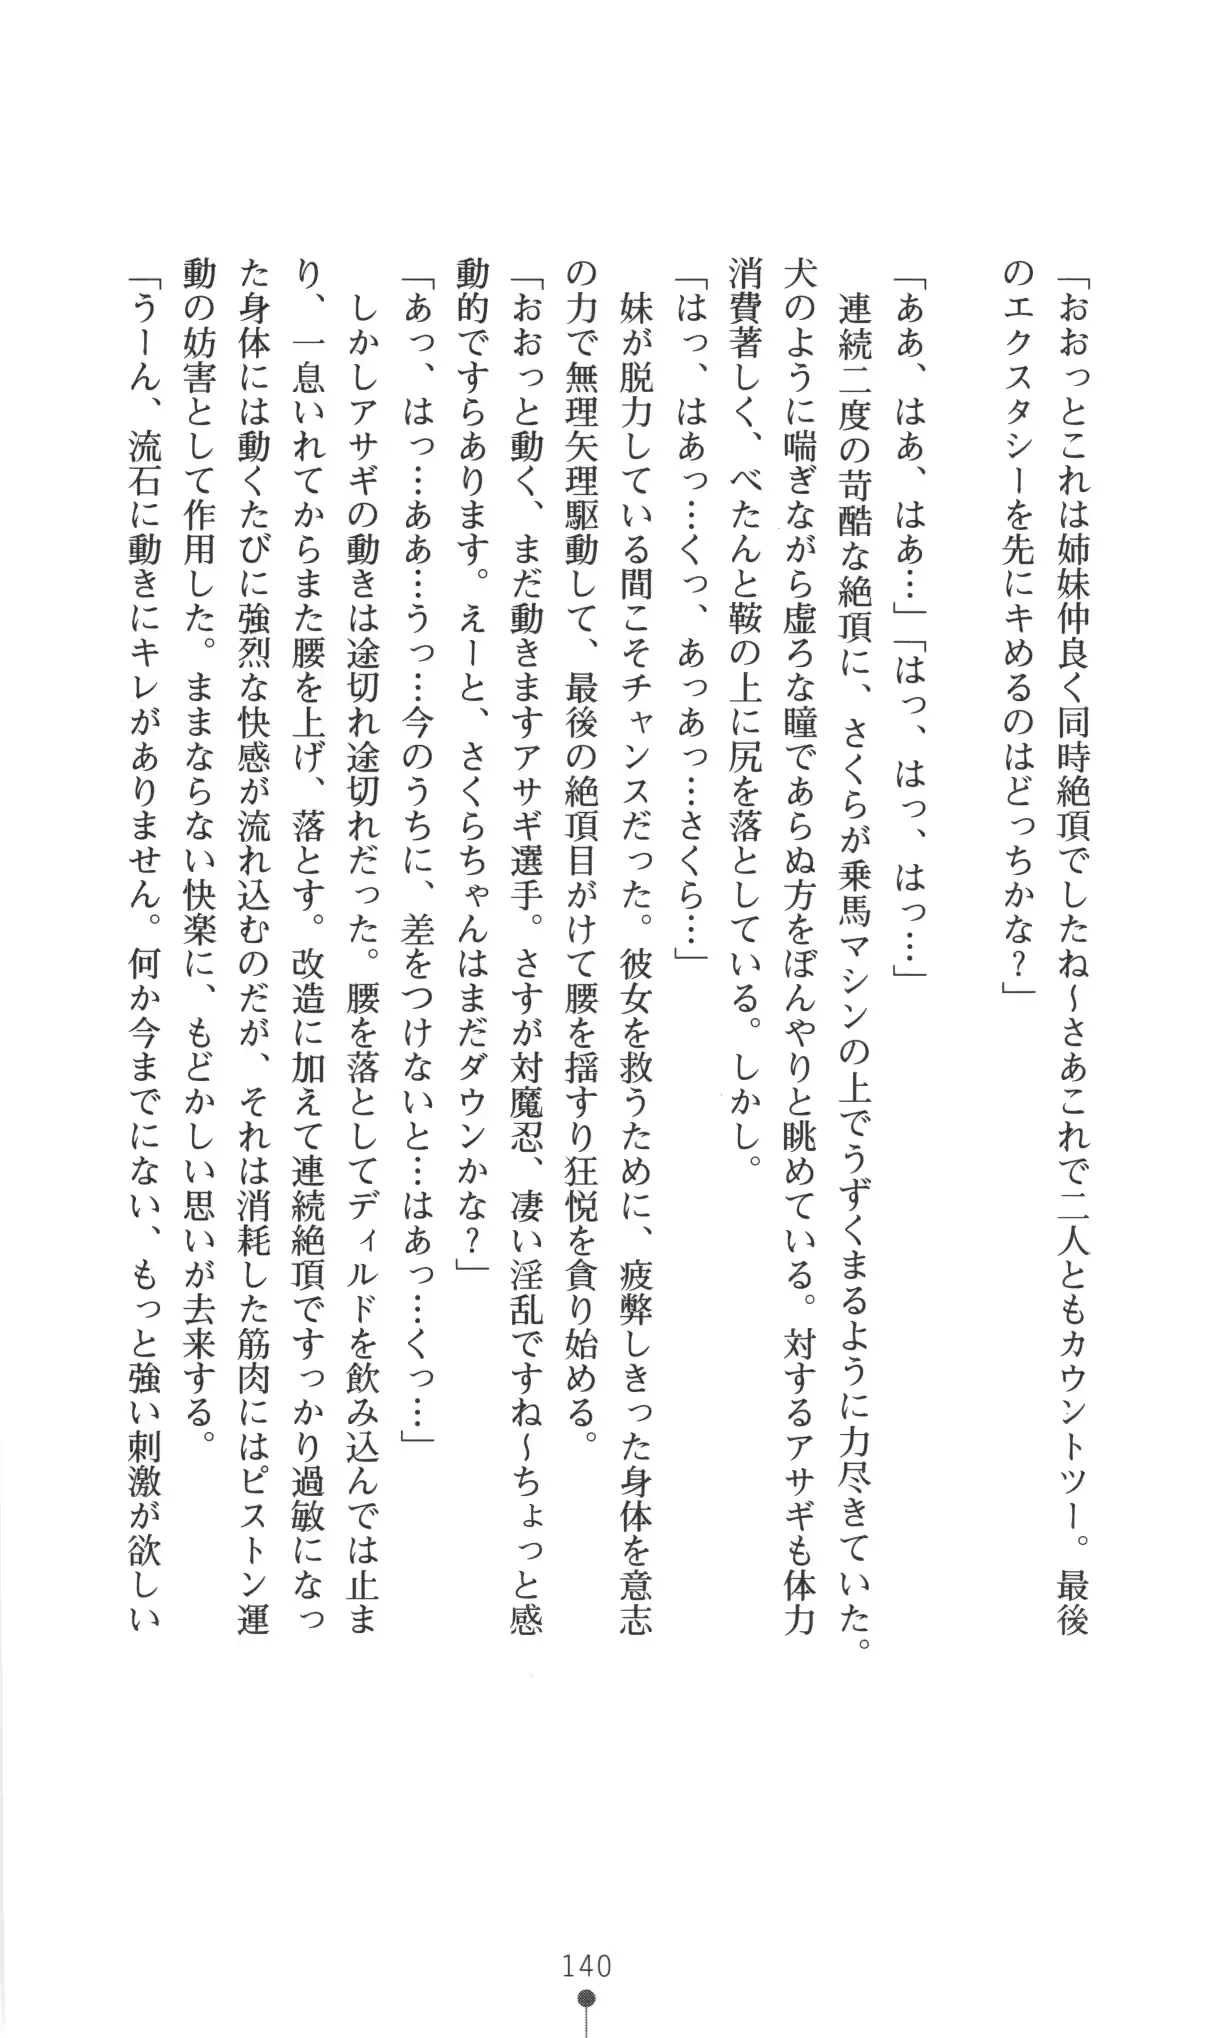 「おおっとこれは姉妹仲良く同時絶頂でしたね～さあこれで二人ともカウントツー。最後
のエクスタシーを先にキめるのはどっちかな？」
「ああ、はあ、はあ…」「はっ、はっ、はっ…」
連続二度の苛酷な絶頂に、さくらが乗馬マシンの上でうずくまるように力尽きていた。
犬のように喘ぎながら虚ろな瞳であらぬ方をぼんやりと眺めている。対するアサギも体力
消費著しく、べたんと鞍の上に尻を落としている。しかし。
「はっ、はあっ…くっ、あっあっ…さくら…」
妹が脱力している間こそチャンスだった。彼女を救うために、疲弊しきった身体を意志
の力で無理矢理駆動して、最後の絶頂目がけて腰を揺すり狂悦を貪り始める。
「おおっと動く、まだ動きますアサギ選手。さすが対魔忍、凄い淫乱ですね～ちょっと感
動的ですらあります。えーと、さくらちゃんはまだダウンかな？」
「あっ、はっ…ああ…うっ…今のうちに、差をつけないと…はあっ…くっ…」
しかしアサギの動きは途切れ途切れだった。腰を落としてディルドを飲み込んでは止ま
り、一息いれてからまた腰を上げ、落とす。改造に加えて連続絶頂ですっかり過敏になっ
た身体には動くたびに強烈な快感が流れ込むのだが、それは消耗した筋肉にはピストン運
動の妨害として作用した。ままならない快楽に、もどかしい思いが去来する。
「うーん、流石に動きにキレがありません。何か今までにない、もっと強い刺激が欲しい
140